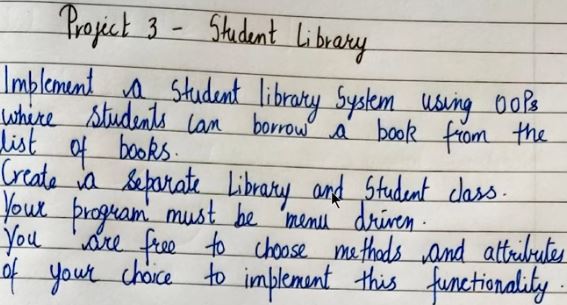 Project 3 - Student Library
Implement a Student library System using OOPs
where students can borrow a book from the
list of books.
Create a separate Library and Student class.
Your program must be menu driven.
You are free to choose methods and attributes
of your choice to implement this functionality.